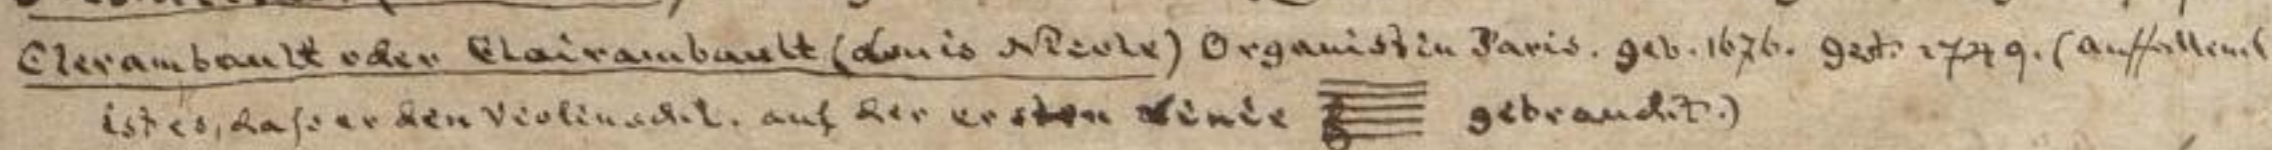 Clerambault oder Clairambault (Louis Nicole) Organist in Paris. geb. 1676. gest. 1749. (Auffallend
ist es, daß er den Violinschl. auf der ersten Linie gebraucht.)